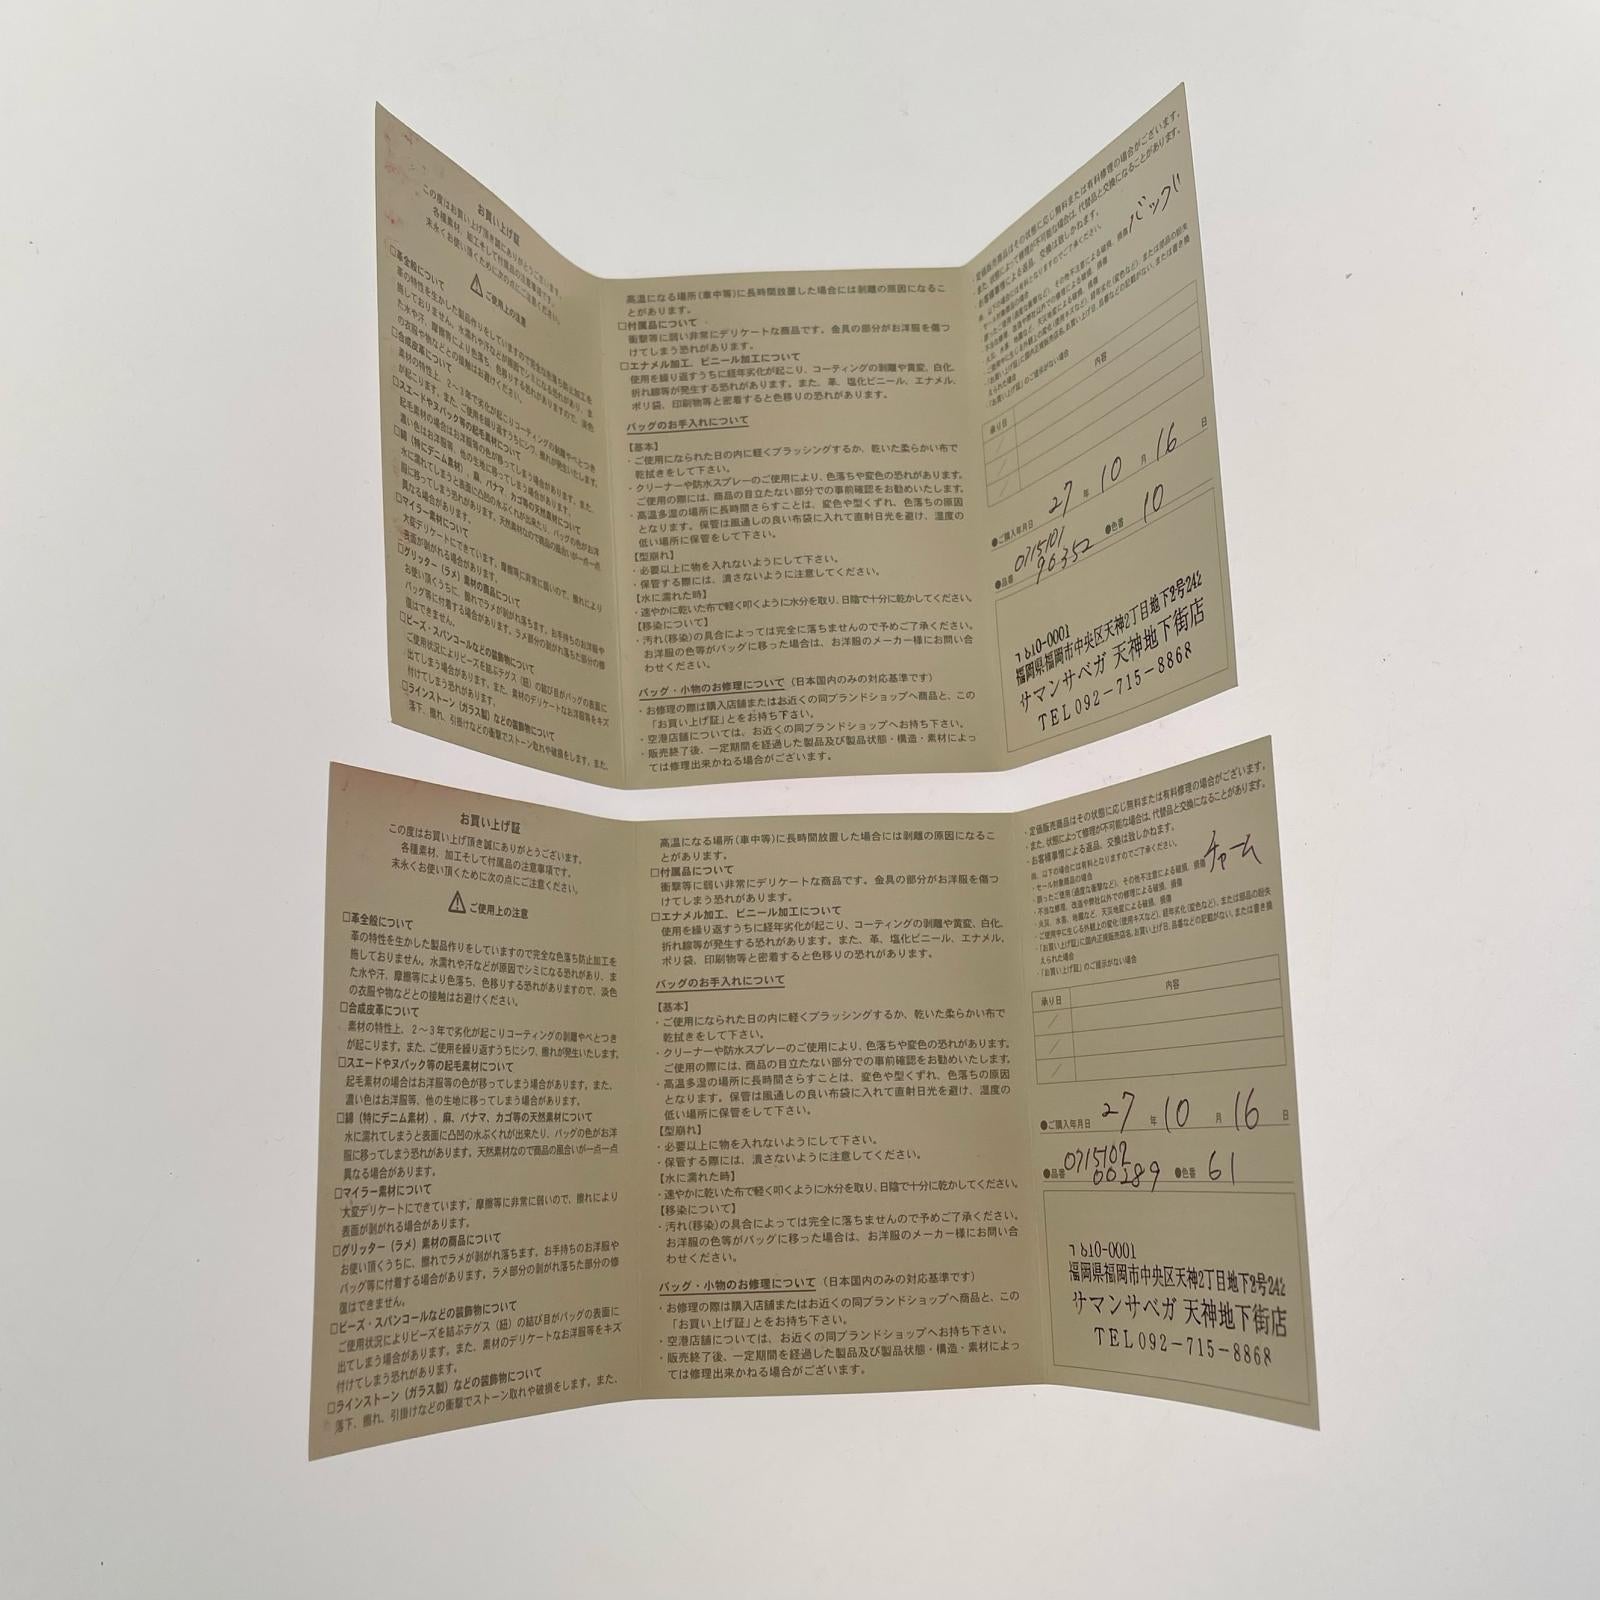 お買い上げ証
この度はお買い上げ頂き誠にありがとうございます。
各種素材、加工そして付属品の注意事項です。
末永くお使い頂くために次の点にご注意ください。
ご使用上の注意
□革全般について
革の特性を生かした製品作りをしていますので完全な色落ち防止加工を
施しておりません。水濡れや汗などが原因でシミになる恐れがあり、ま
た水や汗、摩擦等により色落ち、色移りする恐れがありますので、淡色
の衣服や物などとの接触はお避けください。
□合成皮革について
素材の特性上、2～3年で劣化が起こりコーティングの剥離やべとつき
が起こります。また、ご使用を繰り返すうちにシワ、擦れが発生いたします。
□スエードやヌバック等の起毛素材について
起毛素材の場合はお洋服等の色が移ってしまう場合があります。また、
濃い色はお洋服等、他の生地に移ってしまう場合があります。
□綿（特にデニム素材）、麻、パナマ、カゴ等の天然素材について
水に濡れてしまうと表面に凸凹の水ぶくれが出来たり、バッグの色がお洋
服に移ってしまう恐れがあります。天然素材なので商品の風合いが一点一点
異なる場合があります。
□マイラー素材について
大変デリケートにできています。摩擦等に非常に弱いので、擦れにより
表面が剥がれる場合があります。
□グリッター（ラメ）素材の商品について
お使い頂くうちに、擦れでラメが剥がれ落ちます。お手持ちのお洋服や
バッグ等に付着する場合があります。ラメ部分の剥がれ落ちた部分の修
復はできません。
□ビーズ・スパンコールなどの装飾物について
ご使用状況によりビーズを結ぶテグス（紐）の結び目がバッグの表面に
出てしまう場合があります。また、素材のデリケートなお洋服等をキズ
付けてしまう恐れがあります。
□ラインストーン（ガラス製）などの装飾物について
落下、擦れ、引掛けなどの衝撃でストーン取れや破損をします。また、
高温になる場所（車中等）に長時間放置した場合には剥離の原因になるこ
とがあります。
□付属品について
衝撃等に弱い非常にデリケートな商品です。金具の部分がお洋服を傷つ
けてしまう恐れがあります。
□エナメル加工、ビニール加工について
使用を繰り返すうちに経年劣化が起こり、コーティングの剥離や黄変、白化、
折れ線等が発生する恐れがあります。また、革、塩化ビニール、エナメル、
ポリ袋、印刷物等と密着すると色移りの恐れがあります。
バッグのお手入れについて
【基本】
・ご使用になられた日の内に軽くブラッシングするか、乾いた柔らかい布で
乾拭きをして下さい。
・クリーナーや防水スプレーのご使用により、色落ちや変色の恐れがあります。
ご使用の際には、商品の目立たない部分での事前確認をお勧めいたします。
・高温多湿の場所に長時間さらすことは、変色や型くずれ、色落ちの原因
となります。保管は風通しの良い布袋に入れて直射日光を避け、温度の
低い場所に保管をして下さい。
【型崩れ】
・必要以上に物を入れないようにして下さい。
・保管する際には、潰さないように注意してください。
【水に濡れた時】
・速やかに乾いた布で軽く叩くように水分を取り、日陰で十分に乾かしてください。
【移染について】
・汚れ（移染）の具合によっては完全に落ちませんので予めご了承ください。
お洋服の色等がバッグに移った場合は、お洋服のメーカー様にお問い合
わせください。
バッグ・小物のお修理について（日本国内のみの対応基準です）
・お修理の際は購入店舗またはお近くの同ブランドショップへ商品と、この
「お買い上げ証」とをお持ち下さい。
・空港店舗については、お近くの同ブランドショップへお持ち下さい。
・販売終了後、一定期間を経過した製品及び製品状態・構造・素材によっ
ては修理出来かねる場合がございます。
・定価販売商品はその状態に応じ無料または有料修理の場合がございます。
・また、状態によって修理が不可能な場合は、代替品と交換になることがあります。
・お客様事情による返品、交換は致しかねます。
尚、以下の場合には有料となりますのでご了承ください。
バッグ
・セール対象商品の場合
・誤ったご使用（過度な衝撃など）、その他不注意による破損、損傷
・不当な修理、改造や弊社以外での修理による破損、損傷
・火災、水害、地震など、天災地変による破損、損傷
・ご使用中に生じる外観上の変化（使用キズなど）、経年劣化（変色など）、または部品の紛失
・「お買い上げ証」に国内正規販売店名、お買い上げ日、品番などの記載がない、または書き換
えられた場合
・「お買い上げ証」のご提示がない場合
承り日 内容
●ご購入年月日 27 年 10 月 16 日
●品番 0715101 96352 ●色番 10
〒810-0001
福岡県福岡市中央区天神2丁目地下2号242
サマンサベガ 天神地下街店
TEL092-715-8868
お買い上げ証
この度はお買い上げ頂き誠にありがとうございます。
各種素材、加工そして付属品の注意事項です。
末永くお使い頂くために次の点にご注意ください。
ご使用上の注意
□革全般について
革の特性を生かした製品作りをしていますので完全な色落ち防止加工を
施しておりません。水濡れや汗などが原因でシミになる恐れがあり、ま
た水や汗、摩擦等により色落ち、色移りする恐れがありますので、淡色
の衣服や物などとの接触はお避けください。
□合成皮革について
素材の特性上、2～3年で劣化が起こりコーティングの剥離やべとつき
が起こります。また、ご使用を繰り返すうちにシワ、擦れが発生いたします。
□スエードやヌバック等の起毛素材について
起毛素材の場合はお洋服等の色が移ってしまう場合があります。また、
濃い色はお洋服等、他の生地に移ってしまう場合があります。
□綿（特にデニム素材）、麻、パナマ、カゴ等の天然素材について
水に濡れてしまうと表面に凸凹の水ぶくれが出来たり、バッグの色がお洋
服に移ってしまう恐れがあります。天然素材なので商品の風合いが一点一点
異なる場合があります。
□マイラー素材について
大変デリケートにできています。摩擦等に非常に弱いので、擦れにより
表面が剥がれる場合があります。
□グリッター（ラメ）素材の商品について
お使い頂くうちに、擦れでラメが剥がれ落ちます。お手持ちのお洋服や
バッグ等に付着する場合があります。ラメ部分の剥がれ落ちた部分の修
復はできません。
□ビーズ・スパンコールなどの装飾物について
ご使用状況によりビーズを結ぶテグス（紐）の結び目がバッグの表面に
出てしまう場合があります。また、素材のデリケートなお洋服等をキズ
付けてしまう恐れがあります。
□ラインストーン（ガラス製）などの装飾物について
落下、擦れ、引掛けなどの衝撃でストーン取れや破損をします。また、
高温になる場所（車中等）に長時間放置した場合には剥離の原因になるこ
とがあります。
□付属品について
衝撃等に弱い非常にデリケートな商品です。金具の部分がお洋服を傷つ
けてしまう恐れがあります。
□エナメル加工、ビニール加工について
使用を繰り返すうちに経年劣化が起こり、コーティングの剥離や黄変、白化、
折れ線等が発生する恐れがあります。また、革、塩化ビニール、エナメル、
ポリ袋、印刷物等と密着すると色移りの恐れがあります。
バッグのお手入れについて
【基本】
・ご使用になられた日の内に軽くブラッシングするか、乾いた柔らかい布で
乾拭きをして下さい。
・クリーナーや防水スプレーのご使用により、色落ちや変色の恐れがあります。
ご使用の際には、商品の目立たない部分での事前確認をお勧めいたします。
・高温多湿の場所に長時間さらすことは、変色や型くずれ、色落ちの原因
となります。保管は風通しの良い布袋に入れて直射日光を避け、温度の
低い場所に保管をして下さい。
【型崩れ】
・必要以上に物を入れないようにして下さい。
・保管する際には、潰さないように注意してください。
【水に濡れた時】
・速やかに乾いた布で軽く叩くように水分を取り、日陰で十分に乾かしてください。
【移染について】
・汚れ（移染）の具合によっては完全に落ちませんので予めご了承ください。
お洋服の色等がバッグに移った場合は、お洋服のメーカー様にお問い合
わせください。
バッグ・小物のお修理について（日本国内のみの対応基準です）
・お修理の際は購入店舗またはお近くの同ブランドショップへ商品と、この
「お買い上げ証」とをお持ち下さい。
・空港店舗については、お近くの同ブランドショップへお持ち下さい。
・販売終了後、一定期間を経過した製品及び製品状態・構造・素材によっ
ては修理出来かねる場合がございます。
・定価販売商品はその状態に応じ無料または有料修理の場合がございます。
・また、状態によって修理が不可能な場合は、代替品と交換になることがあります。
・お客様事情による返品、交換は致しかねます。
尚、以下の場合には有料となりますのでご了承ください。
チャーム
・セール対象商品の場合
・誤ったご使用（過度な衝撃など）、その他不注意による破損、損傷
・不当な修理、改造や弊社以外での修理による破損、損傷
・火災、水害、地震など、天災地変による破損、損傷
・ご使用中に生じる外観上の変化（使用キズなど）、経年劣化（変色など）、または部品の紛失
・「お買い上げ証」に国内正規販売店名、お買い上げ日、品番などの記載がない、または書き換
えられた場合
・「お買い上げ証」のご提示がない場合
承り日 内容
●ご購入年月日 27 年 10 月 16 日
●品番 0715102 00289 ●色番 61
〒810-0001
福岡県福岡市中央区天神2丁目地下2号242
サマンサベガ 天神地下街店
TEL092-715-8868